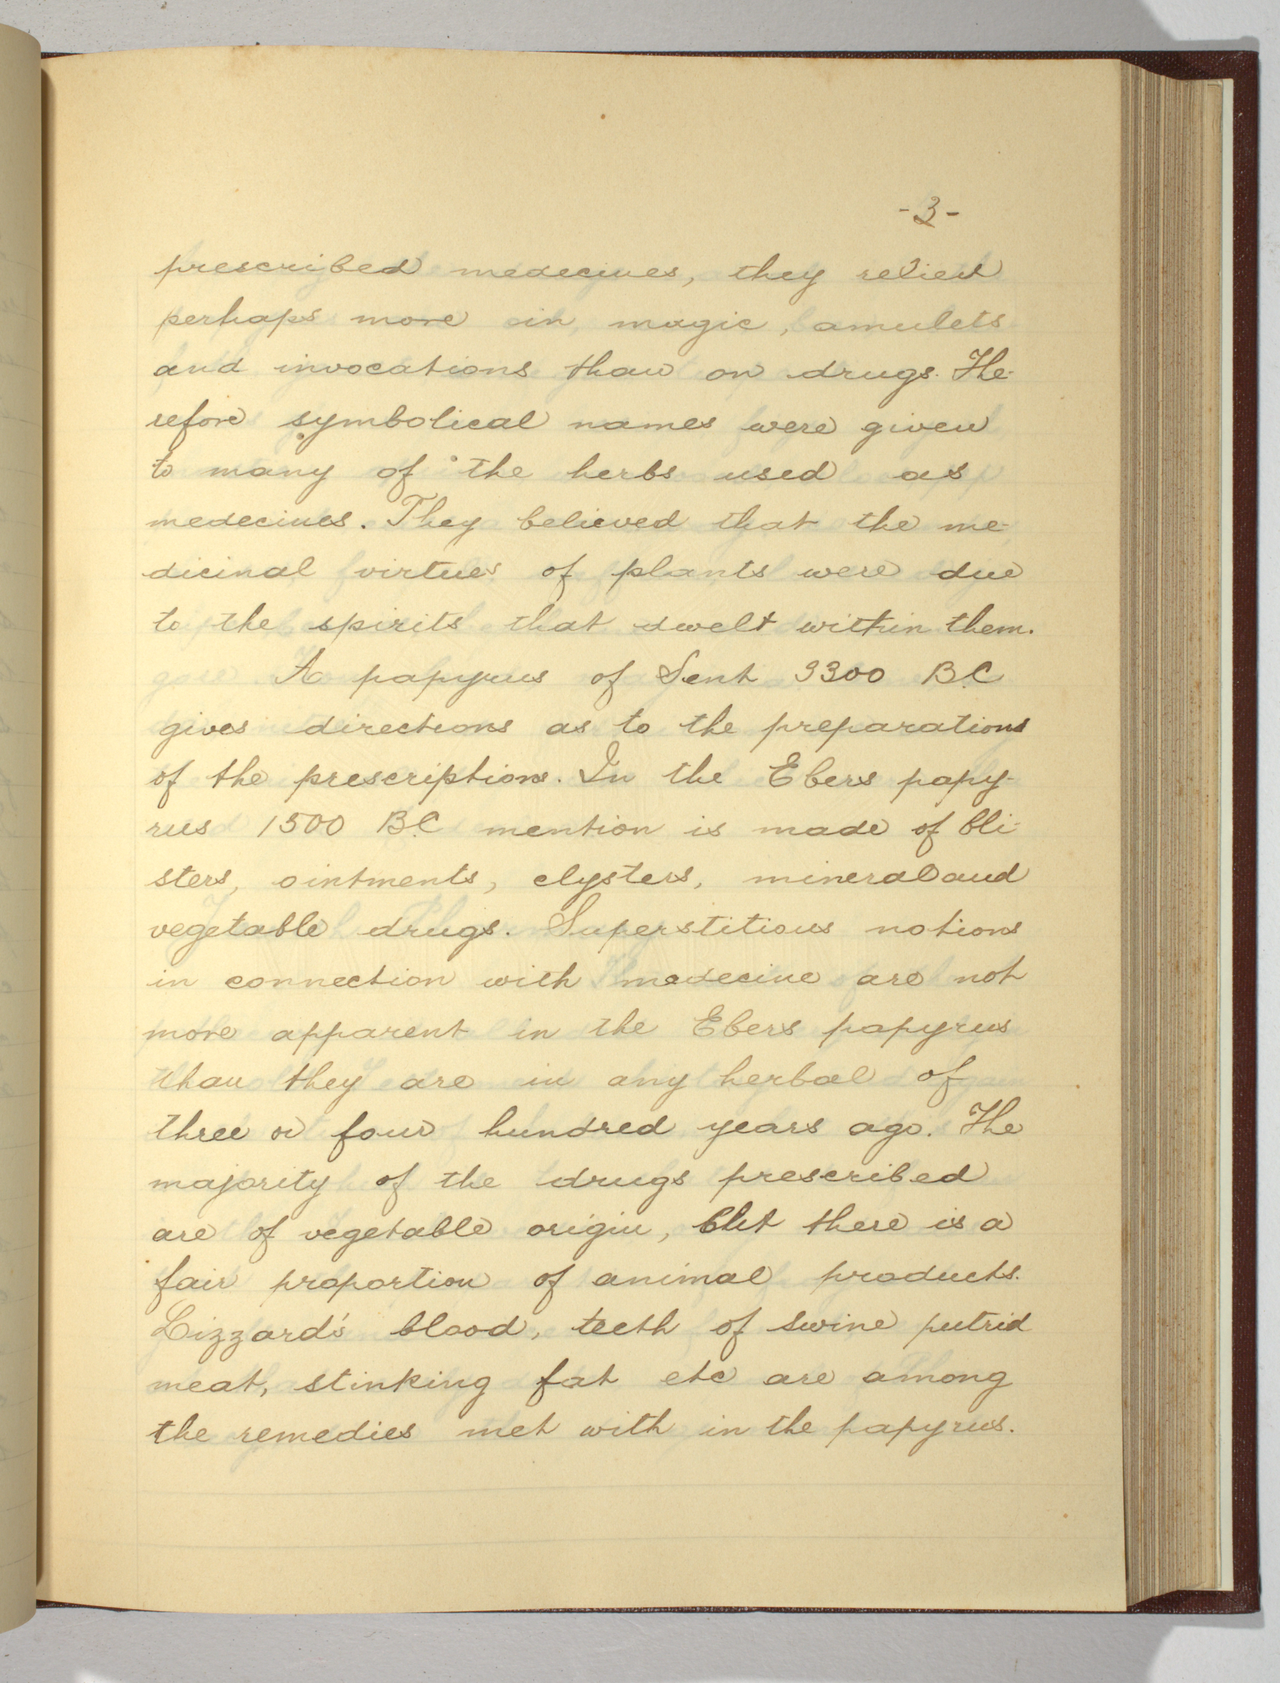 -3-
prescribed medecines, they relied
perhaps more in magic, amulets
and invocations than on drugs. The-
refore symbolical names were given
to many of the herbs used as
medecines. They believed that the me-
dicinal virtues of plants were due
to the spirits that dwelt within them.
A papyrus of Sent 3300 B.C
gives directions as to the preparations
of the prescriptions. In the Ebers papy-
rus 1500 B.C mention is made of bli-
sters, ointments, clysters, mineral and
vegetable drugs. Superstitious notions
in connection with medecine are not
more apparent in the Ebers papyrus
than they are in any herbal of
three or four hundred years ago. The
majority of the drugs prescribed
are of vegetable origin, but there is a
fair proportion of animal products.
Lizzard's blood, teeth of swine putrid
meat, stinking fat etc are among
the remedies met with in the papyrus.